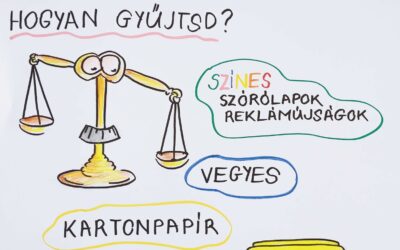 HOGYAN GYŰJTSD?
SZÍNES
SZÓRÓLAPOK
REKLÁMÚJSÁGOK
VEGYES
KARTONPAPÍR